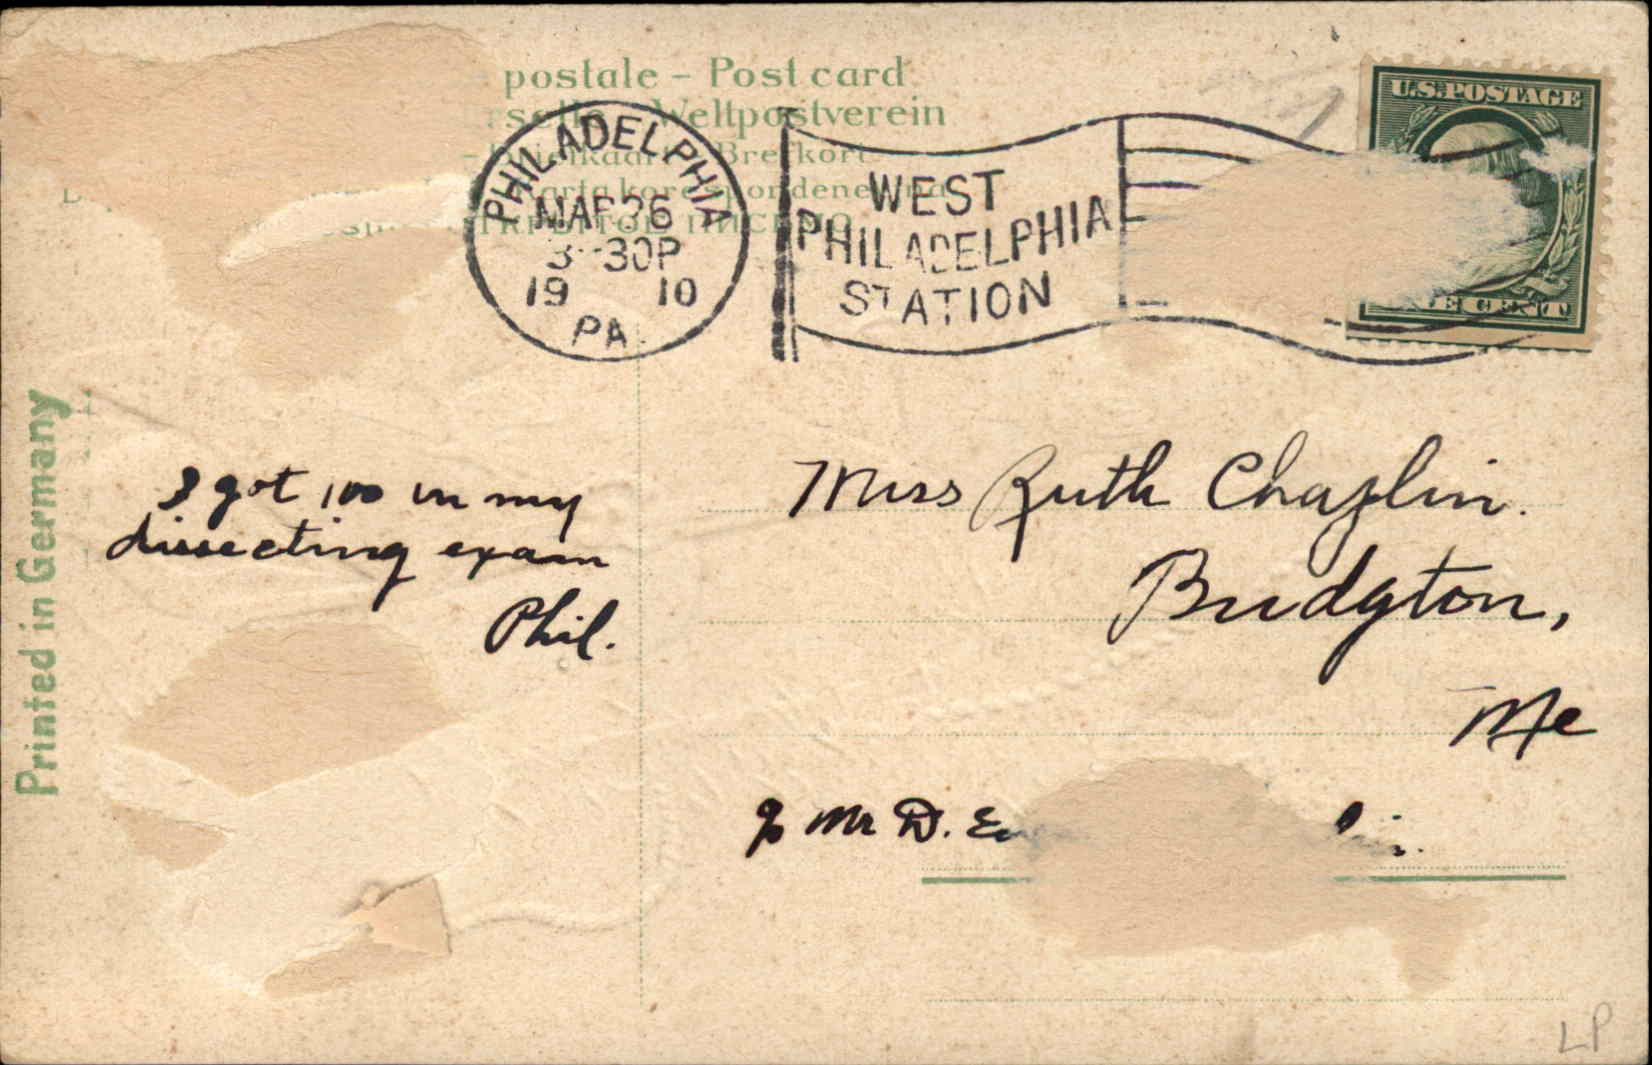 postale – Post card
Weltpostverein
PHILADELPHIA
MAR 26
3-30P
19 10
PA
WEST
PHILADELPHIA
STATION
U.S. POSTAGE
CENT
Printed in Germany
I got 100 in my
dissecting exam
Phil.
Miss Ruth Chaplin.
Bridgton,
Me
c/o Mr D.
LP